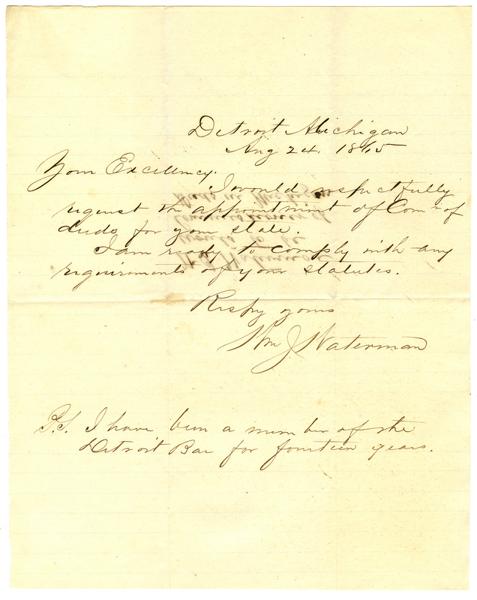 Detroit Michigan
Aug 24. 1865
Your Excellency.
I would respectfully
request the appointment of Com- of
deeds for your state.
I am ready to comply with any
requirements of your statutes.
Respy yours
Wm J Waterman
P.S. I have been a member of the
Detroit Bar for fourteen years.